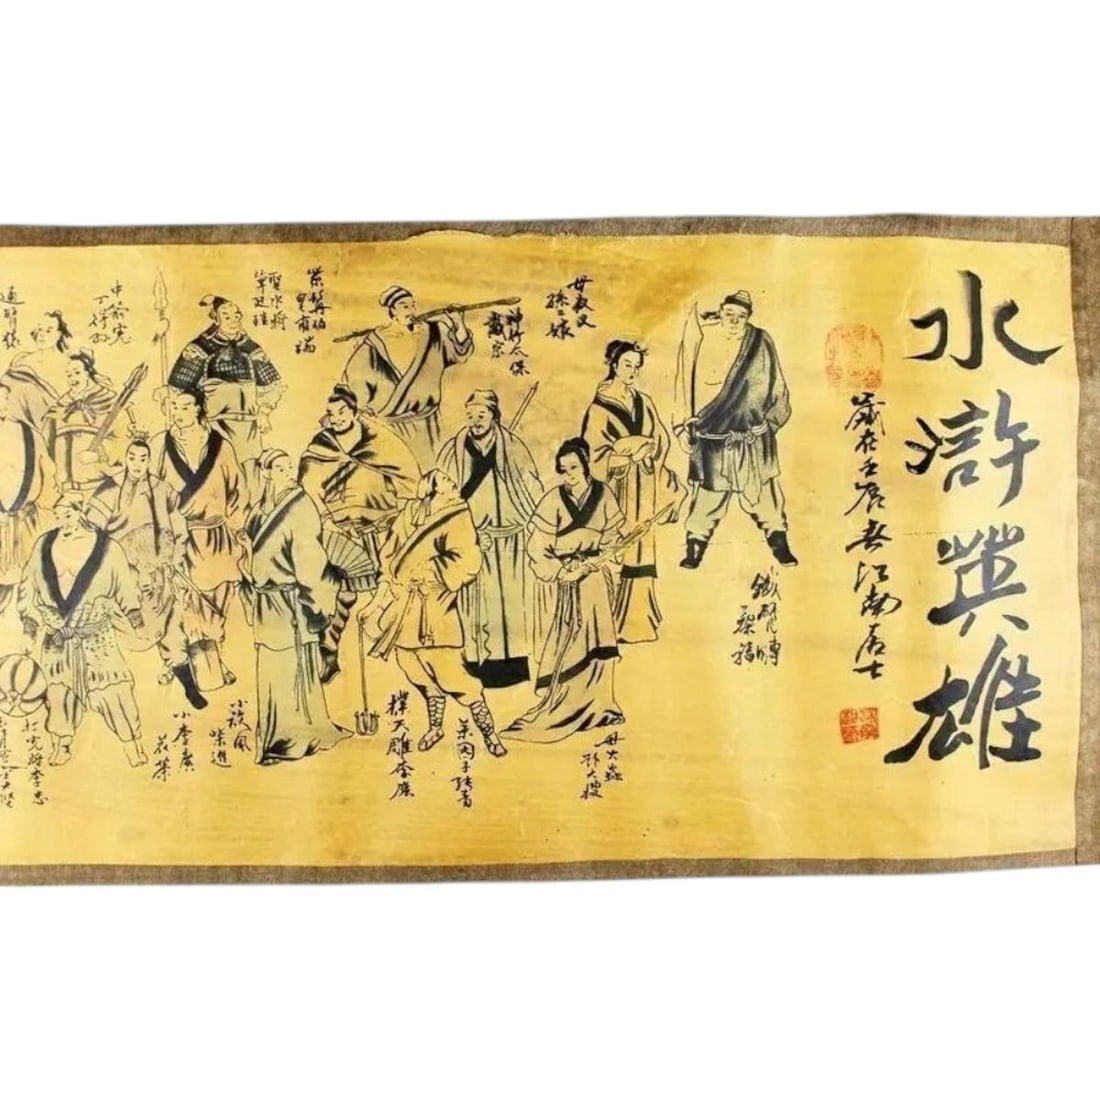 水滸英雄
歲在壬辰春江南居士
鐵臂膊
蔡福
母夜叉
孫二娘
母大蟲
顧大嫂
神行太保
戴宗
菜園子張青
撲天雕李應
紫髯伯
皇甫端
聖水將
單廷珪
小旋風
柴進
小李廣
花榮
中箭虎
丁得孙
打虎將李忠
通臂猿